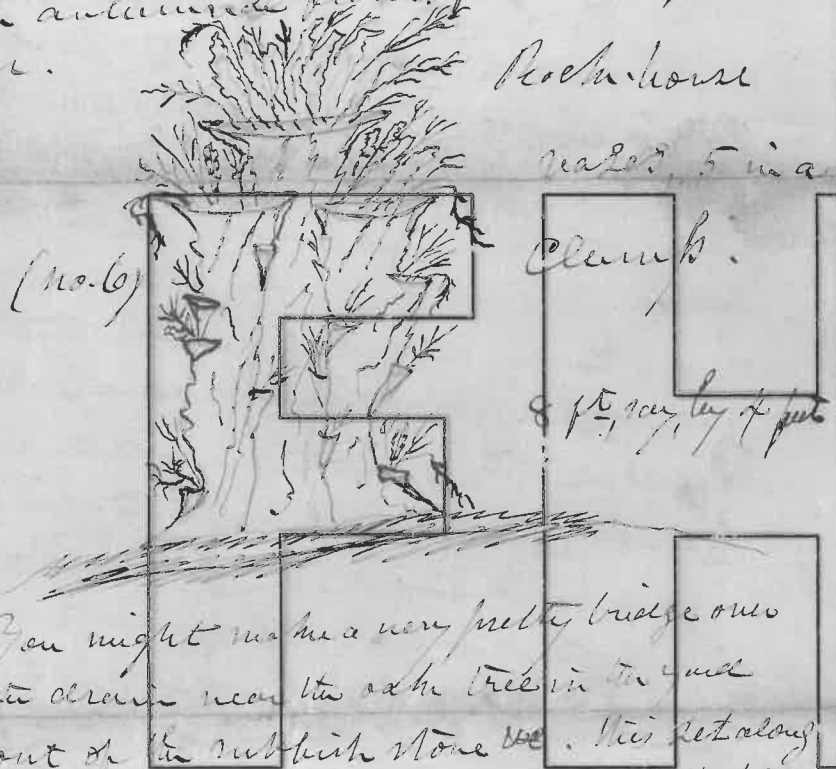 Rock-house
5 in a
(No. 6)
Clump.
8 ft, say, by 4 feet
You might make a very pretty bridge over
the drain near the oak tree in the yard
out of the rubbish stone. This set along